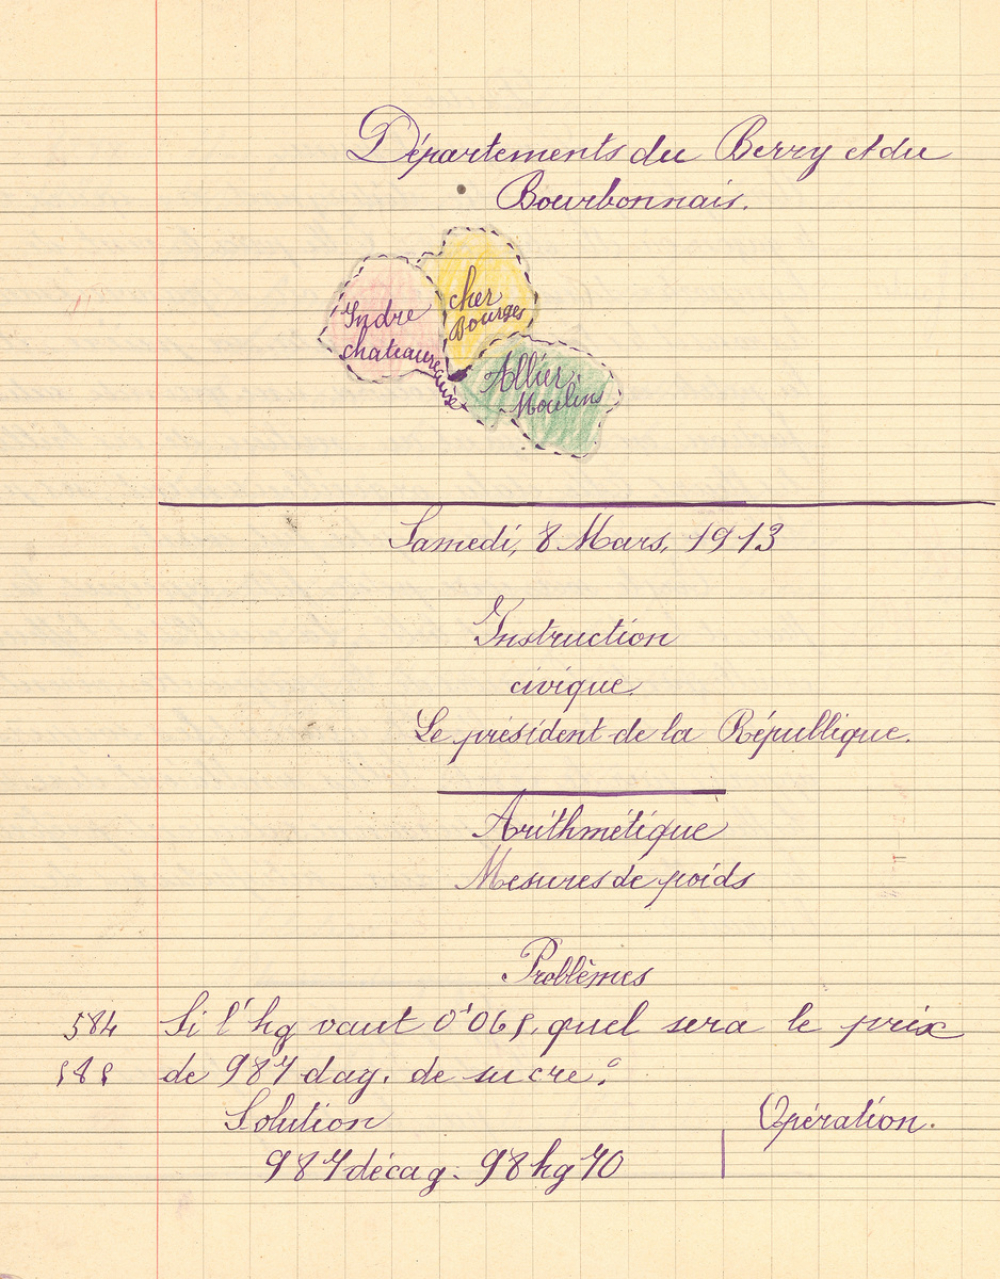 Départements du Berry et du
Bourbonnais.
Indre
chateaureaux
cher
Bourges
Allier
Moulins
Samedi, 8 Mars, 1913
Instruction
civique.
Le président de la République.
Arithmétique
Mesures de poids
Problèmes
584 Si l'hg vaut 0f065, quel sera le prix
585 de 987 dag. de sucre?
Solution
Opération.
987 décag. 98hg70